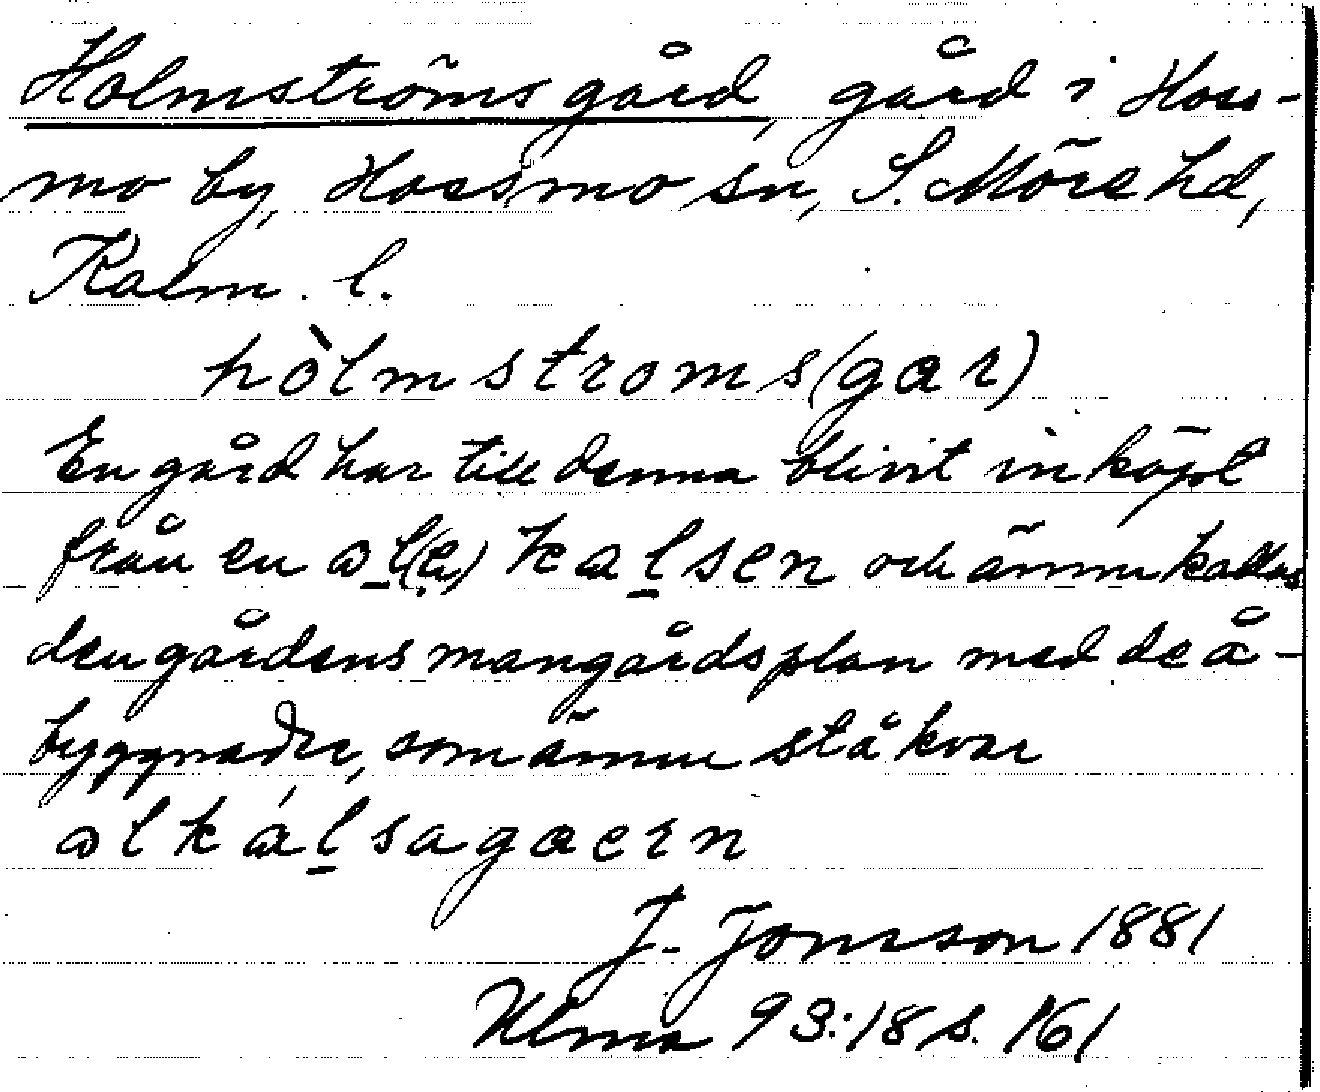 Holmströms gård, gård i Hoss-
mo by, Hossmo sn, S. Möre hd,
Kalm. l.
hòlmstroms(gar)
En gård har till denna blivit inköpt
från en al(e) kalsen och ännu kallas
den gårdens mangårdsplan med de å-
byggnader, som ännu stå kvar
alkálsagaern
J. Jonsson 1881
Ulma 93:18 s. 161